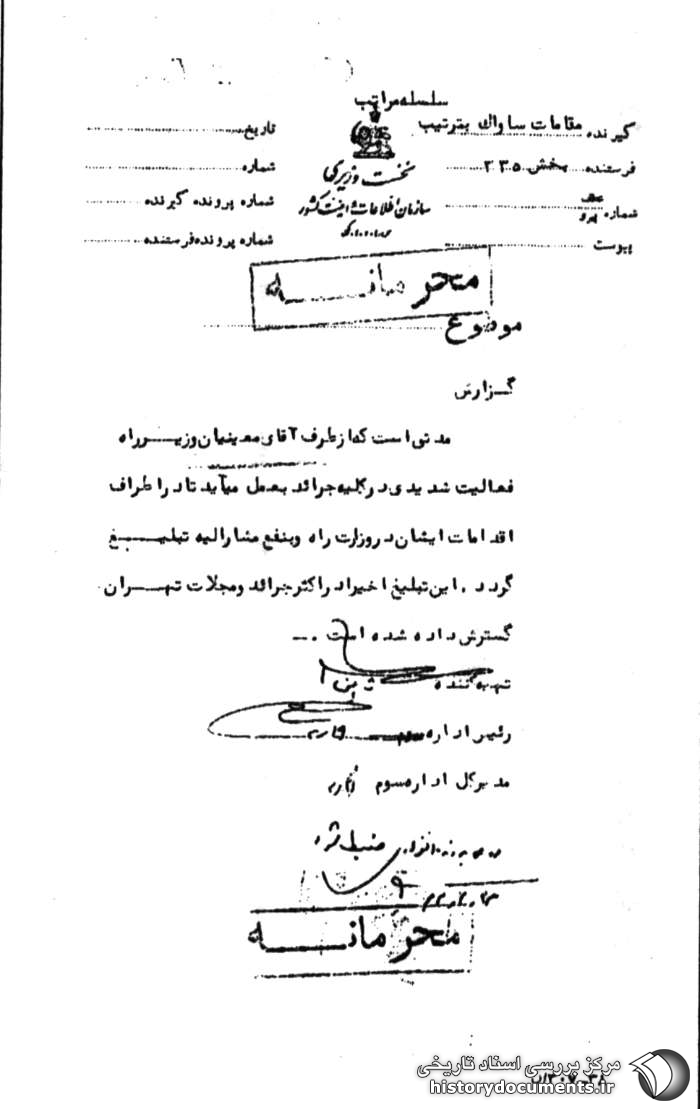 سلسله مراتب
گیرنده مقامات ساواک بترتیب
تاریخ
فرستنده بخش ۲۳۵
نخست وزیری
شماره
سازمان اطلاعات و امنیت کشور
شماره پرونده گیرنده
شماره پیرو
س.ا.و.ا.ک
پیوست
شماره پرونده فرستنده
محرمانه
موضوع
گزارش
مدتی است که از طرف آقای معینیان وزیر راه
فعالیت شدیدی در کلیه جرائد بعمل میآید تا در اطراف
اقدامات ایشان در وزارت راه و بنفع مشارالیه تبلیغ
گردد . این تبلیغ اخیرا در اکثر جرائد و مجلات تهران
گسترش داده شده است . ـ
تهیه کننده
رئیس اداره
مدیرکل اداره سوم
ضبط شود
محرمانه
مرکز بررسی اسناد تاریخی
historydocuments.ir